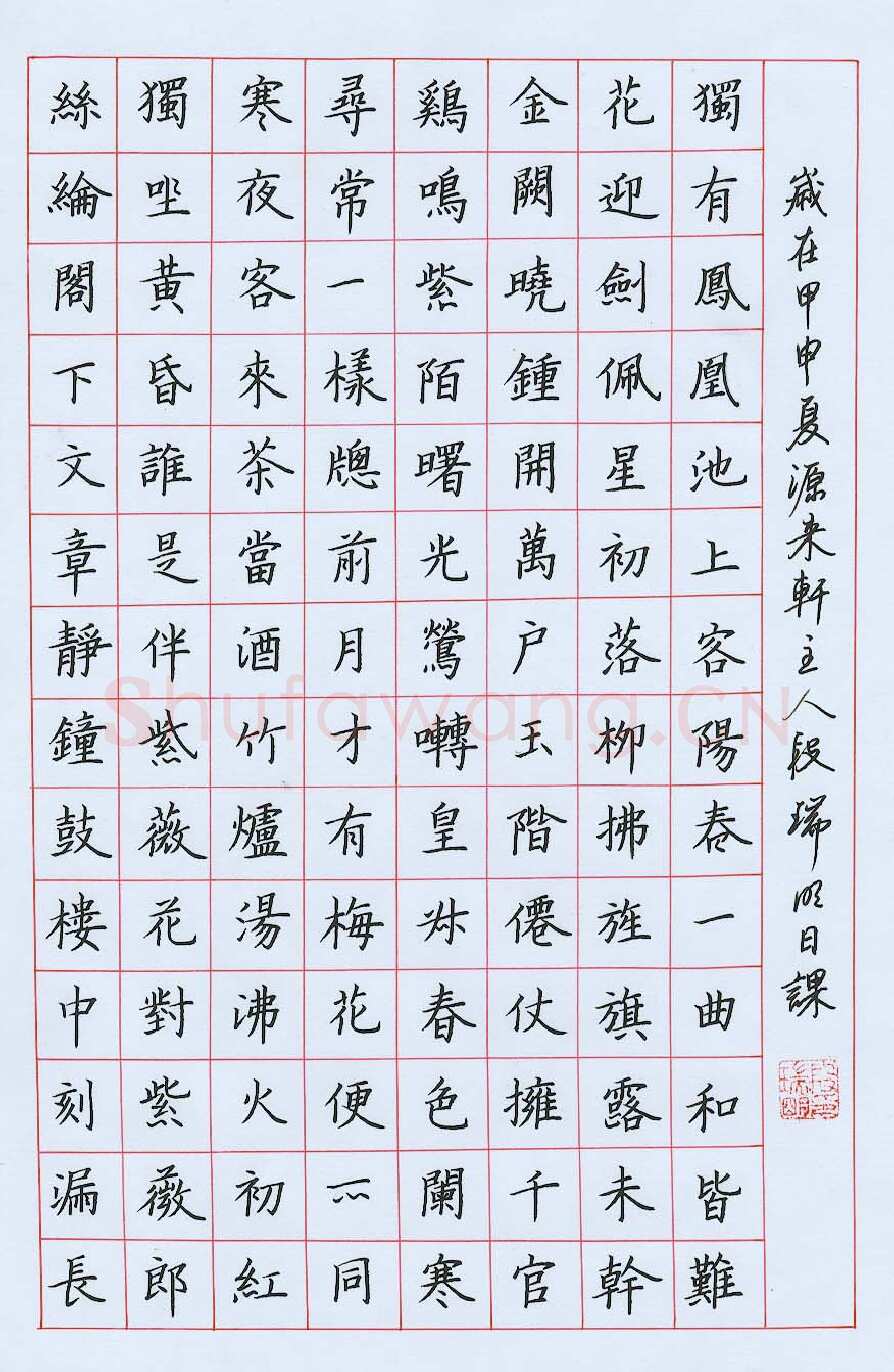 絲綸閣下文章靜鐘鼓樓中刻漏長
獨坐黃昏誰是伴紫薇花對紫薇郎
寒夜客來茶當酒竹爐湯沸火初紅
尋常一樣牕前月才有梅花便不同
鷄鳴紫陌曙光寒鶯囀皇州春色闌
金闕曉鍾開萬户玉階僊仗擁千官
花迎劍佩星初落柳拂旌旗露未幹
獨有鳳凰池上客陽春一曲和皆難
歲在甲申夏源来軒主人段瑞明日課
Shufawang.CN